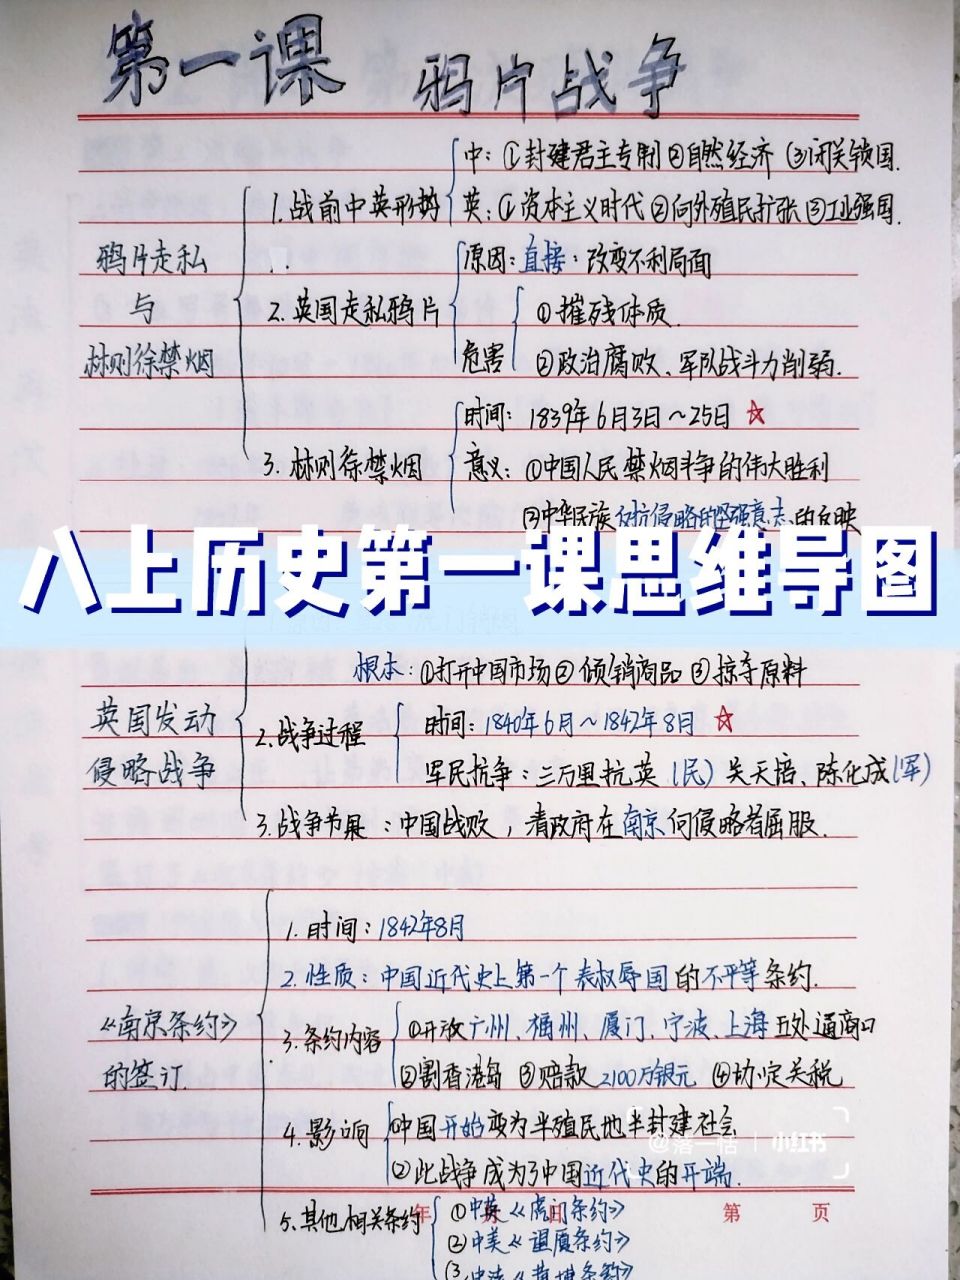 第一课 鸦片战争
中：①封建君主专制②自然经济③闭关锁国.
1.战前中英形势
英：①资本主义时代②向外殖民扩张③工业强国.
鸦片走私
与
林则徐禁烟
原因：直接：改变不利局面
2.英国走私鸦片
①摧残体质.
危害
②政治腐败、军队战斗力削弱.
时间：1839年6月3日～25日☆
3.林则徐禁烟
意义：①中国人民禁烟斗争的伟大胜利
②中华民族反抗侵略的坚强意志的反映
八上历史第一课思维导图
根本：①打开中国市场②倾销商品③掠夺原料
英国发动
侵略战争
2.战争过程
时间：1840年6月～1842年8月☆
军民抗争：三万里抗英（民）关天培、陈化成（军）
3.战争发展：中国战败，清政府在南京向侵略者屈服.
1.时间：1842年8月
2.性质：中国近代史上第一个丧权辱国的不平等条约.
《南京条约》
的签订
3.条约内容
①开放广州、福州、厦门、宁波、上海五处通商口
②割香港岛③赔款2100万银元④协定关税
4.影响
①中国开始变为半殖民地半封建社会
②此战争成为了中国近代史的开端.
@落一恬 | 小红书
5.其他相关条约
①中英《虎门条约》
②中美《望厦条约》
年 月 日 第 页